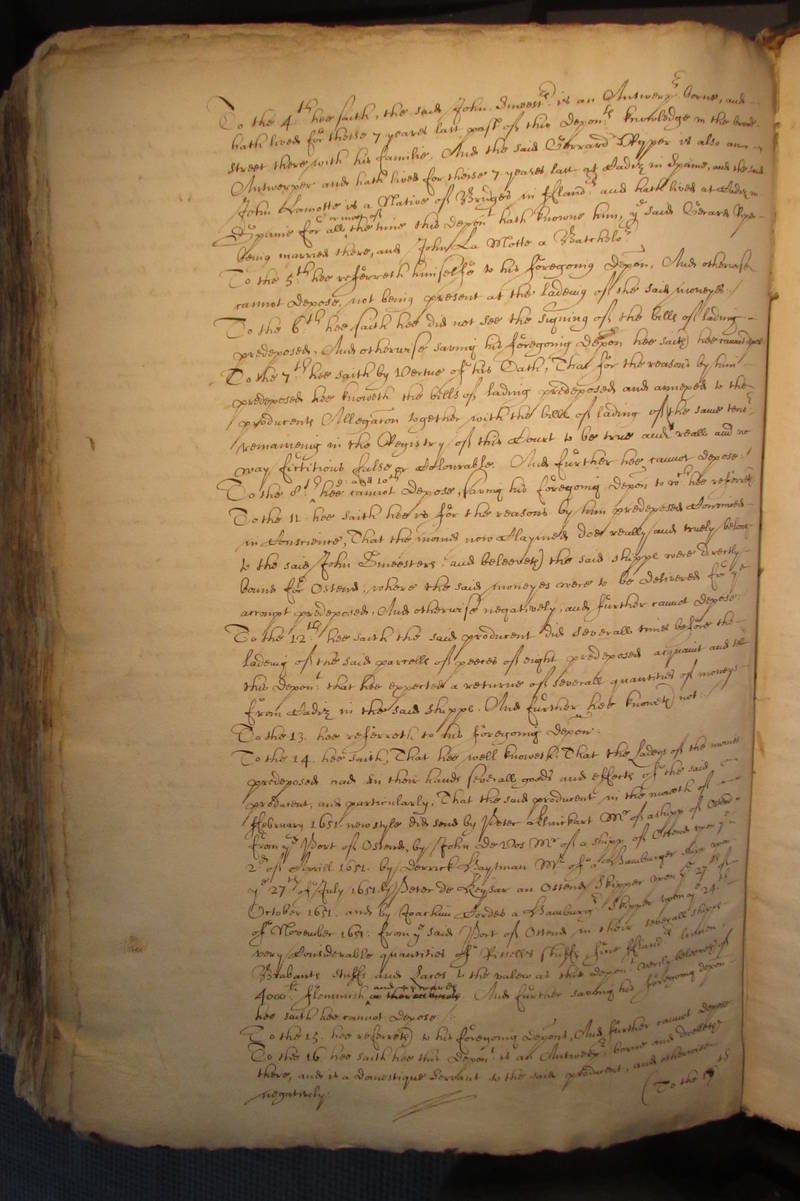 To the 4.th hee saith, the said John Smeesters is an Antwerpr borne, and
hath lived for theise 7 yeares last past of this deponts knowledge in the
street there with his familie. And the said Gerrard Ryper is also an
Antwerper and hath lived for theise 7 yeares last at Cadiz in Spaine, and the said
John Lamotte is a Native of Bridges in Flandrs and hath lived at Cadiz in
Spaine for all or most of the time this depont hath knowne him, ye said Gerard Ryper
being married there, and John La Motte a Batchelor
To the 5.th hee referreth himselfe to his foregoing depon, And otherwise
cannot depose, not being present at the ladeing of the said moneyes./
To the 6th hee saith hee did not see the signing of the bills of lading
predeposed, And otherwise saving his foregoing depon hee saith hee cannot depose
To the 7.th hee saith by vertue of his Oath, That for the reasons by him
predeposed hee knoweth the bills of lading predeposed and annexed to the
producents Allegaon together with the bills of lading of the same tenr
remaineing in the Registry of this Court to be true and reall and no
way fictitious false or Colourable. And further hee cannot depose./
To the 8th 9 and 10th hee cannot depose, saving his foregoing depon to wch hee referreth
To the 11. hee saith hee is for the reasons by him predeposed Convinced
in Conscience, That the monies now Claymed doe really and truely belong
to the said John Smeesters: and beleeveth the said shipps were directly
bound for Ostend, where the said moneyes were to be delivered for ye
accompt predeposed, And otherwise negatively, and further cannot depose:
To the 12.th hee saith the said producent did severall times before the
ladeing of the said parcells of peeces of eight predeposed acquaint and tell
this depont that hee expected a returne of severall quantities of moneys
from Cadiz in the said shipps. And further hee knoweth not./
To the 13. hee referreth to his foregoing depon.
To the 14. hee saith, That hee well knoweth, That the laders of the monies
predeposed had in their hands severall goods and effects of the said
producent, and particularly, That the said producent in the moneth of
ffebruary 1651 new style did send by Peter Mr of a shipp of Ostend
from ye Port of Ostend, by John de Vos Mr of a shipp of Ostend upon ye
2d of Aprill 1651. by Derrick Mr of a Hamburger shipp upon
ye 27th of July 1651. by Peter de Keysar an Ostend Skipper upon ye 27th of
October 1651. and by Joachim a Hamburgr Skipper upon ye 24.th
of November 1651. from ye said Port of Ostend in their severall shipps
very Considerable quantities of stuffs, fine Flandrs linnen,
Brabants stuffs and Laces to the valew as this depont verily beleeveth of
4000 li fflemmish and upwards. And further saving his foregoing depon
hee saith hee cannot depose./
To the 15. hee referreth to his foregoing depont, And further cannot depose
To the 16. hee saith hee this depont is an Antwerpr borne and dwelleth
there, and is a domestique servant to the said producent, and otherwise
negatively.
(To the th